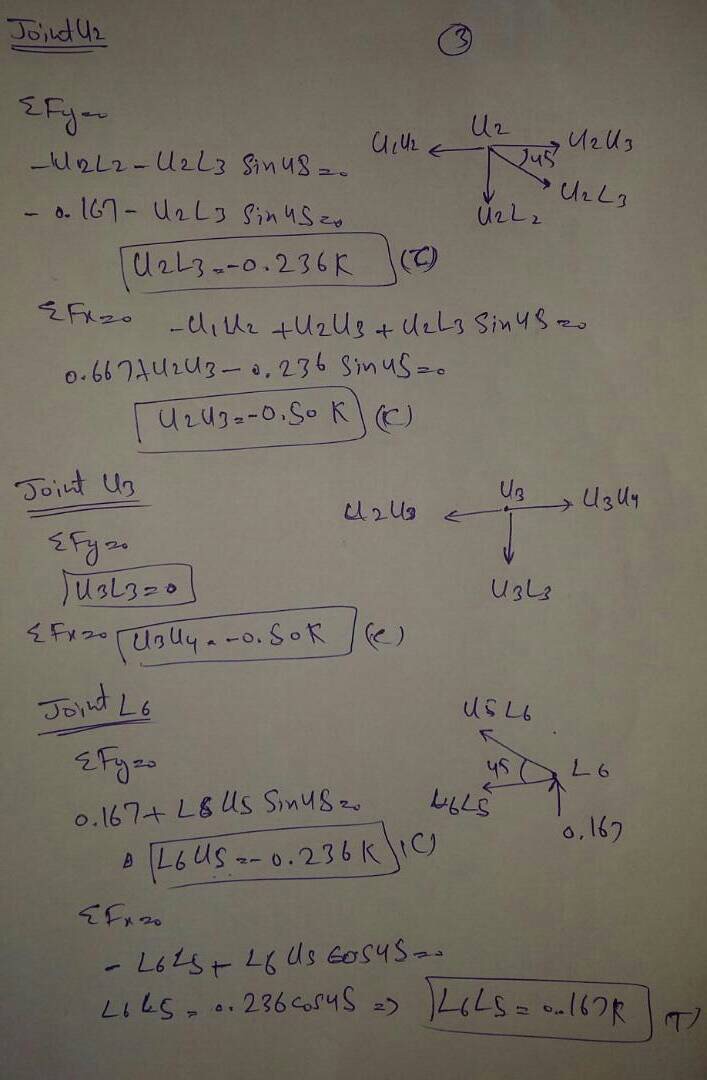 Joint U2
3
ΣFy=0
U1U2
U2
U2U3
45
U2L3
U2L2
-U2L2-U2L3 Sin45=0
-0.167-U2L3 Sin45=0
U2L3=-0.236K (C)
ΣFx=0 -U1U2+U2U3+U2L3 Sin45=0
0.667+U2U3-0.236 Sin45=0
U2U3=-0.50K (C)
Joint U3
U2U3
U3
U3U4
U3L3
ΣFy=0
U3L3=0
ΣFx=0 U3U4=-0.50K (C)
Joint L6
U5L6
45
L6
L6L5
0.167
ΣFy=0
0.167+L6U5 Sin45=0
L6U5=-0.236K (C)
ΣFx=0
-L6L5+L6U5 Cos45=0
L6L5=0.236cos45 => L6L5=0.167K (T)